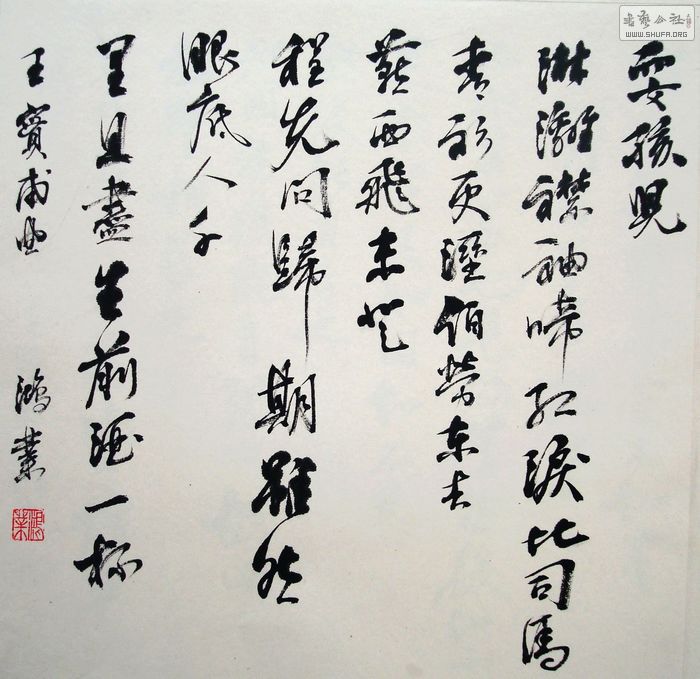 耍孩兒
淋漓襟袖啼红淚比司馬
青衫更溼伯勞东去
燕西飛未登
程先问歸期雖然
眼底人千
里且盡生前酒一杯
王實甫曲
鴻業
鴻業
書藝公社
WWW.SHUFA.ORG